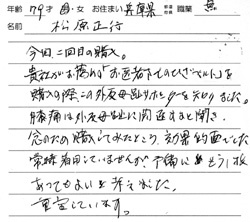 年齢 79才 男・女 お住まい 兵庫県 都道府県 職業 無
名前 松原正行
今回、二回目の購入。
貴社がお薦めの「お医者さんのひざベルト」を
購入の際、この外反母趾サポーターを知りました。
膝痛は外反母趾に関連すると聞き、
念のため購入してみたところ、効果的面でした
常時着用していませんが、予備にもう1枚
あってもよいと考えました。
重宝しています。